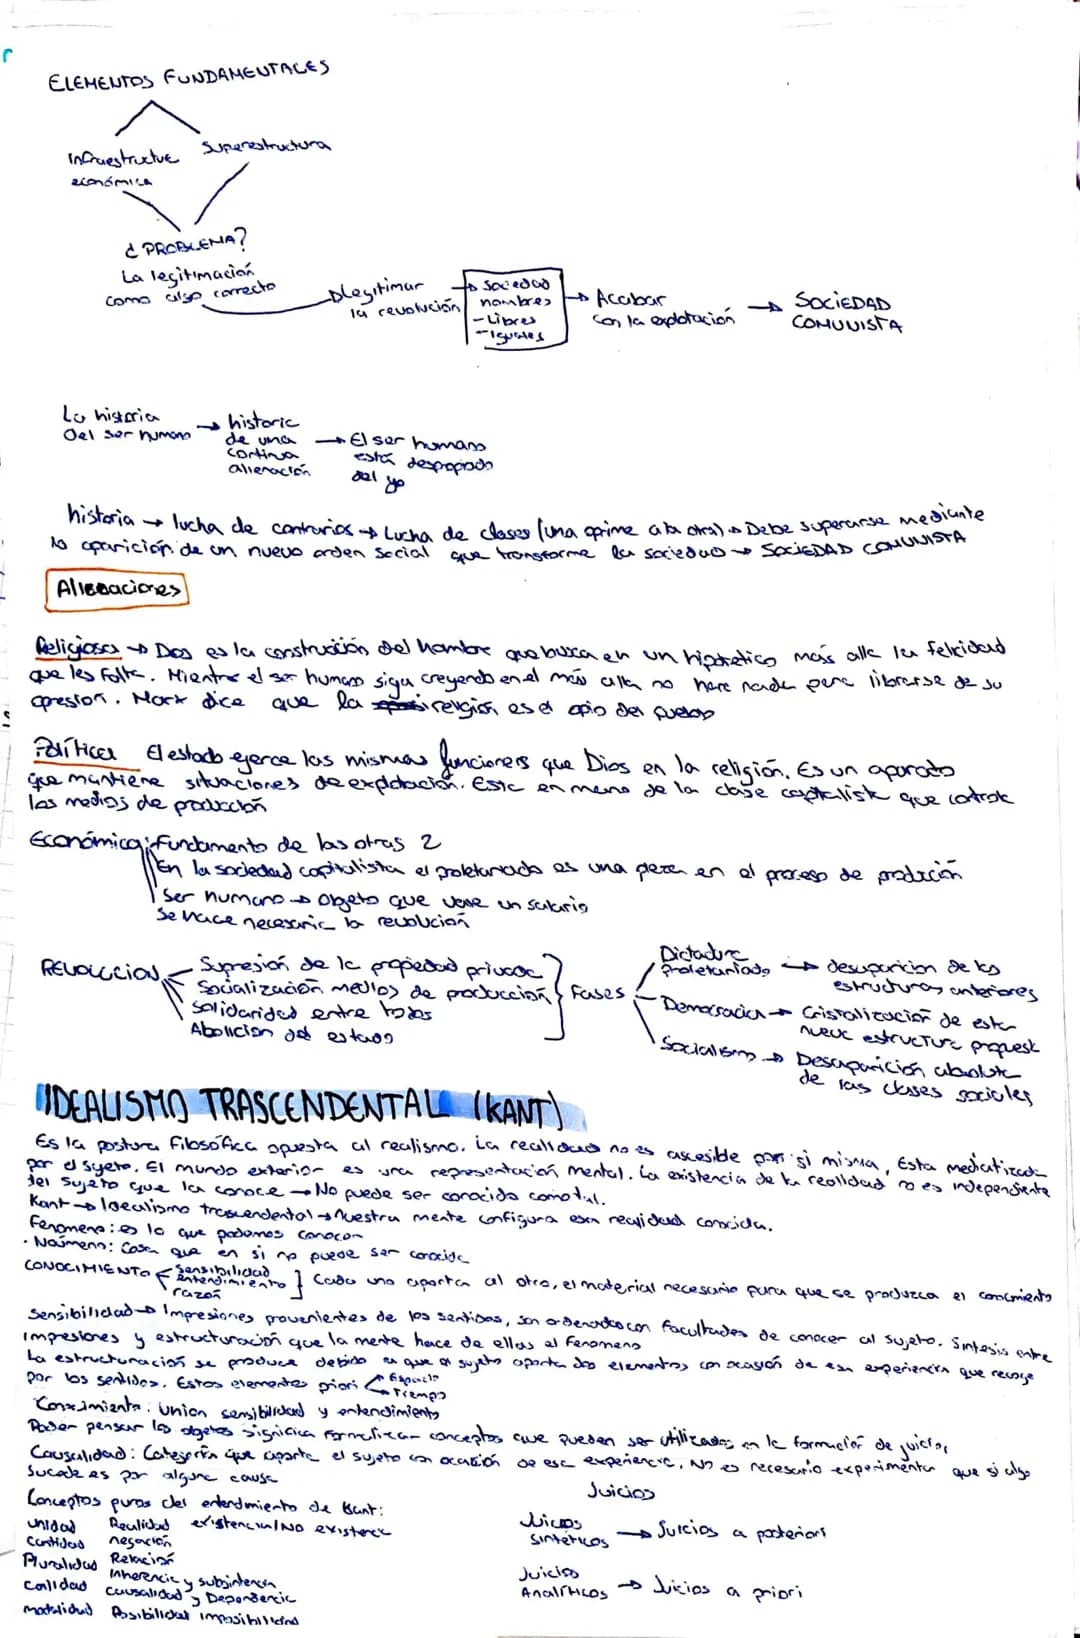 ELEMENTOS FUNDAMENTALES
Infraestructue
económica
Superestructura
¿PROBLEMA?
La legitimación
como algo correcto
Legitimar
la revolución
Sociedad
hombres
- Libres
- Iguales
Acabar
con la explotación
SOCIEDAD
COMUNISTA
La historia
Del ser humano → historia
de una
continua
alienación
→ El ser humano
está despropiado
del yo
historia → lucha de contrarios → Lucha de clases (una oprime a la otra) → Debe superarse mediante
la aparición de un nuevo orden social que transforme la sociedad → SOCIEDAD COMUNISTA
Alienaciones
Religiosa → Dios es la construcción del hombre que busca en un hipotético más alla la felicidad
que les falta. Mientras el ser humano siga creyendo en el más alla no hare nada para librarse de su
opresion. Marx dice que la religión es el opio del pueblo
Política El estado ejerce las mismas funcioners que Dios en la religión. Es un aparato
que mantiene situaciones de explotación. Esta en mano de la clase capitalista que controla
los medios de producción
Económica: Fundamento de las otras 2
En la sociedad capitalista el proletariado es una pieza en el proceso de producción
Ser humano → Objeto que vale un salario
Se hace necesaria la revolución
REVOLUCION
Supresión de la propiedad privada
Socialización medios de producción
Solidaridad entre todos
Abolicion del estado
Fases
Dictadura
Proletariado → desaparicion de las
estructuras anteriores
Democracia → Cristalización de esta
nueva estructura propuest
Socialismo → Desaparición absoluta
de las clases sociales
IDEALISMO TRASCENDENTAL (KANT)
Es la postura filosófica opuesta al realismo. La realidad no es accesible por si misma, Esta mediatizada
por el sujeto. El mundo exterior es una representación mental. La existencia de la realidad no es independiente
del sujeto que la conoce → No puede ser conocida como tal.
Kant → Idealismo trascendental → Nuestra mente configura esa realidad conocida.
Fenomeno: es lo que podemos conocer
• Noúmeno: Cosa que en si no puede ser conocida
CONOCIMIENTO
Sensibilidad
Entendimiento
razón
Cada uno aporta al otro, el material necesario para que se produzca el conocimiento
Sensibilidad → Impresiones provenientes de los sentidos, son ordenados con facultades de conocer al sujeto. Sintesis entre
impresiones y estructuración que la mente hace de ellas al Fenomeno
La estructuración se produce debido a que el sujeto aporta dos elementos con ocasión de esa experiencia que recoge
por los sentidos. Estos elementos priori
Espacio
Tiempo
Conocimiento: Union sensibilidad y entendimiento
Poder pensar los objetos significa formalizar conceptos que pueden ser utilizados en la formación de juicios
Causalidad: Categoría que aporta el sujeto con ocasión de esa experiencia. No es necesario experimentar que si algo
sucede es por alguna causa
Conceptos puros del entendimiento de Kant:
unidad Realidad existencia/No existencia
Cantidad negación
Pluralidad Relación
Inherencia y subsistencia
Calidad Causalidad y Dependencia
modalidad Posibilidad imposibilidad
Juicios
Juicios
Sintéticos → Juicios a posteriori
Juicios
Analíticos → Juicios a priori